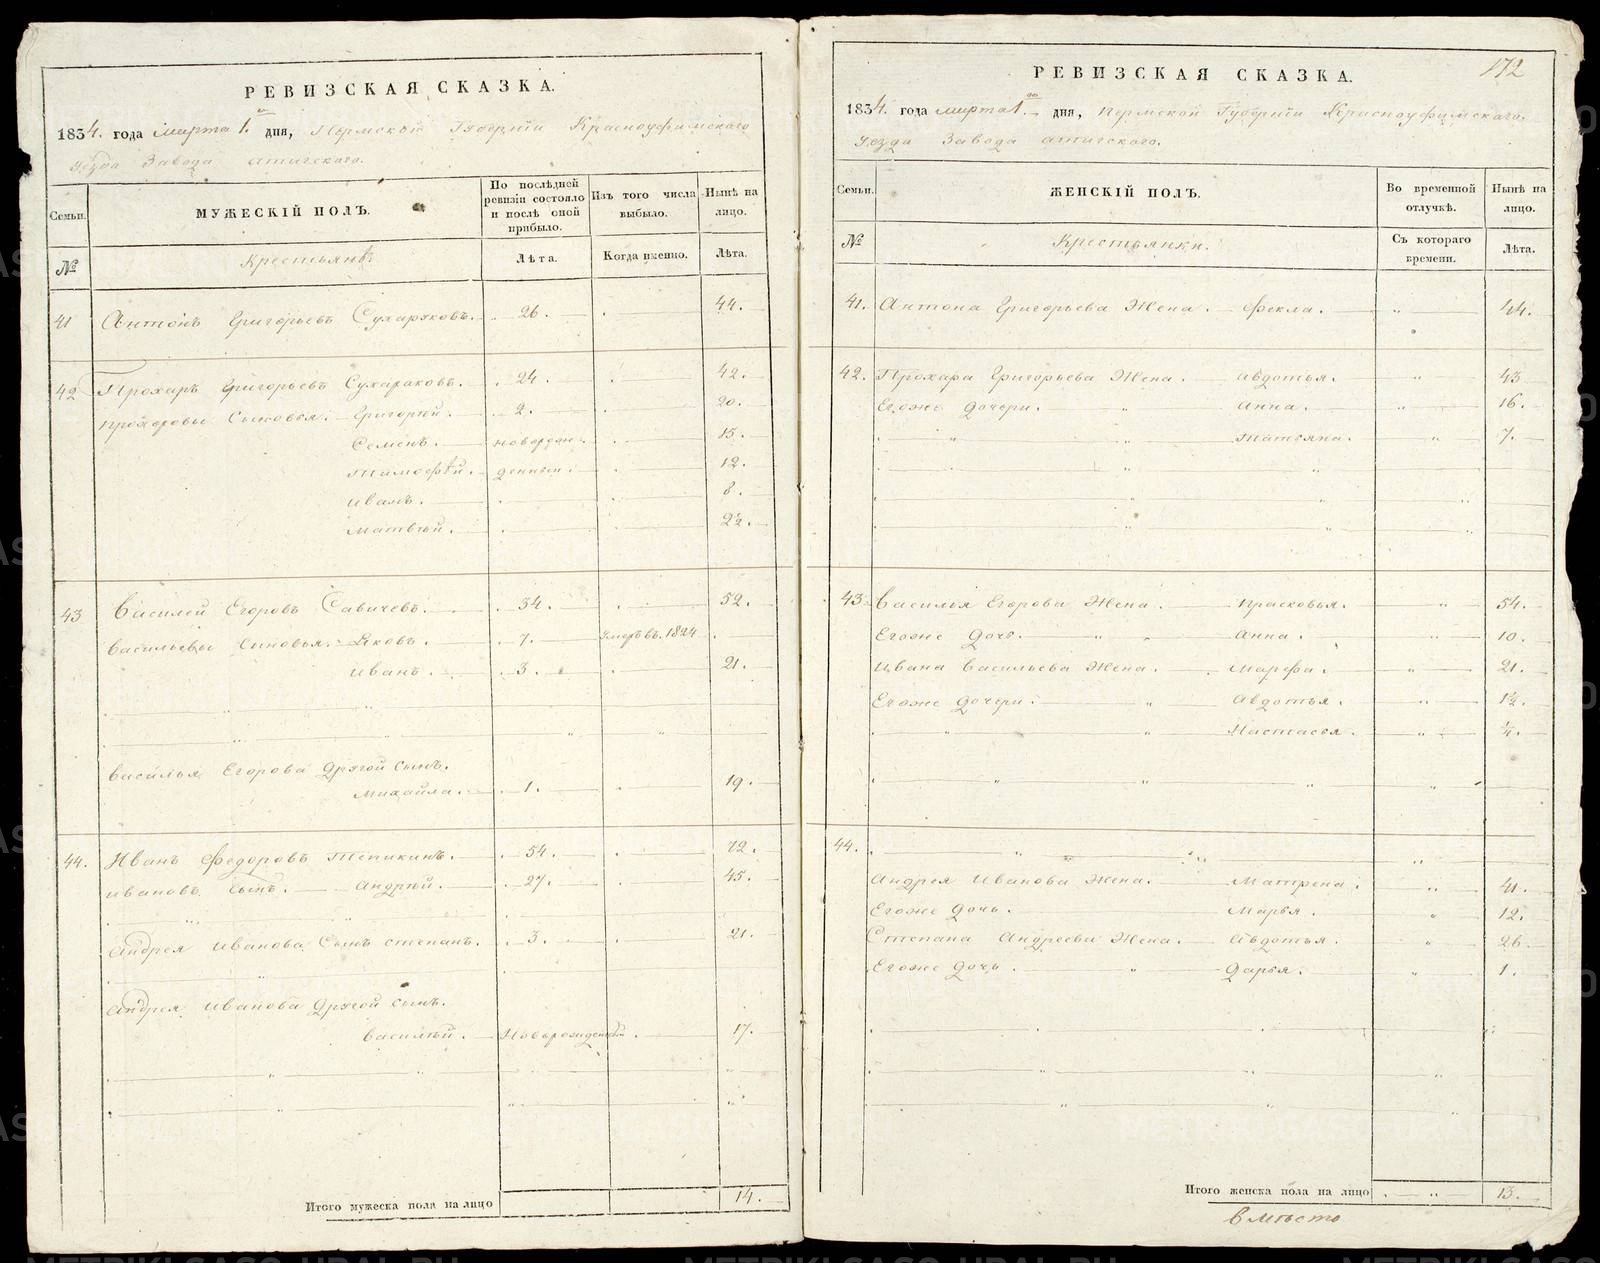 РЕВИЗСКАЯ СКАЗКА.
1834. года марта 1. дня, Пермской Губернiи Красноуфимского
уезда Завода атигского.
Семьи.
МУЖЕСКIЙ ПОЛЪ.
По послѣдней ревизiи состояло и послѣ оной прибыло.
Изъ того числа выбыло.
Нынѣ на лицо.
№
Крестьянѣ
Лѣта.
Когда именно.
Лѣта.
41 Антонъ Григорьевъ Сухаруковъ. 26. 44.
42 Прохаръ Григорьевъ Сухаруковъ. 24. 42.
прохоровы Сыновья. Григорий. 2. 20.
Семенъ. новорож- 15.
Тимофѣй. денныи. 12.
иванъ. 8.
матвѣй. 2½.
43 Василей Егоровъ Савичевъ. 54. 52.
васильевы Сыновья. Яковъ. 7. умеръ въ. 1824
иванъ. 3. 21.
василья Егорова другой сынъ.
михайла. 1. 19.
44. Иванъ Федоровъ Тепикинъ. 54. 72.
ивановъ сынъ. Андрѣй. 27. 45.
Андрея иванова Сынъ степанъ. 3. 21.
Андрея иванова другой сынъ.
василѣй. Новорожденный. 17.
Итого мужеска пола на лицо 14.
172
РЕВИЗСКАЯ СКАЗКА.
1834. года марта 1 дня, Пермской Губернiи Красноуфимского.
уезда Завода атигского.
Семьи.
ЖЕНСКIЙ ПОЛЪ.
Во временной отлучкѣ.
Нынѣ на лицо.
№
Крестьянки.
Съ котораго времени.
Лѣта.
41. Антона Григорьева Жена. Фекла. 44.
42. Прохара Григорьева Жена. авдотья. 43
Егоже дочери. анна. 16.
Татьяна. 7.
43. Василья Егорова Жена. прасковья. 54.
Егоже дочь. анна. 10.
ивана васильева Жена. марфа. 21.
Егоже дочери. авдотья. 1½.
Настасья. ¼.
44.
андрея иванова жена. матрена. 41.
Егоже дочь. марья. 12.
Степана андреева Жена. авдотья. 26.
Егоже дочь. дарья. 1.
Итого женска пола на лицо 13.
вмѣсто